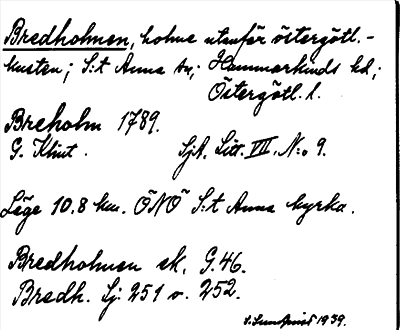 Bredholmen, holme utanför östergötl.-
kusten; S:t Anna sn; Hammarkinds hd;
Östergötl. l.
Breholm 1789.
G. Klint. Sjk. Litt. VII. N:o 9.
Läge 10.8 km. ÖNÖ S:t Anna kyrka.
Bredholmen ek. G.46.
Bredh. Sj. 251 o. 252.
1939.